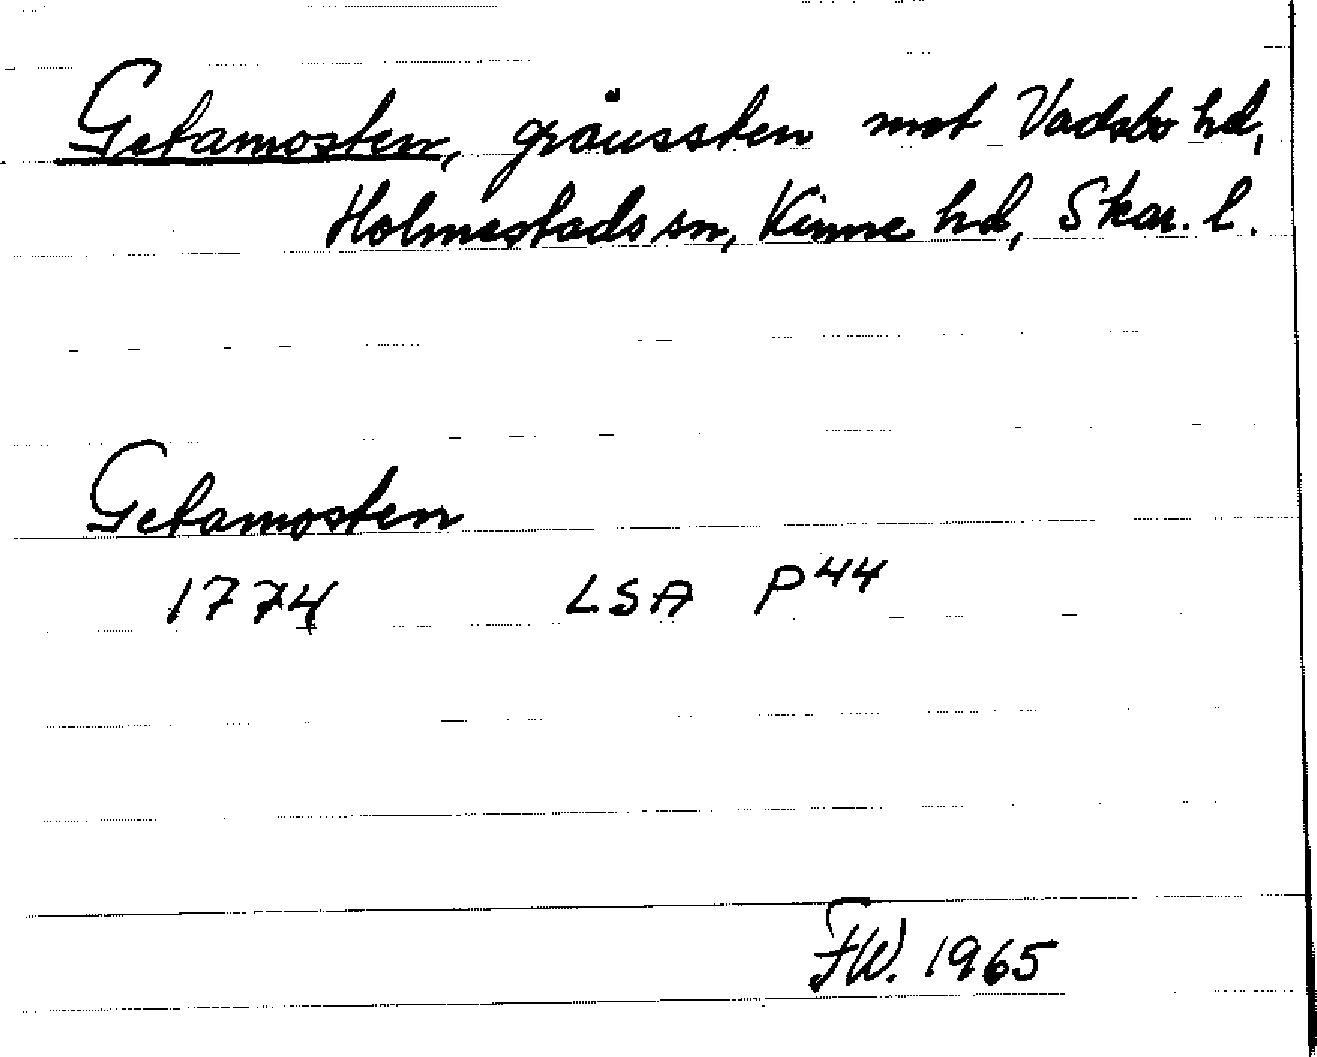 Getamosten, gränssten mot Vadsbo hd,
Holmestads sn, Kinne hd, Skar. l.
Getamosten
1774 LSA P44
FW. 1965